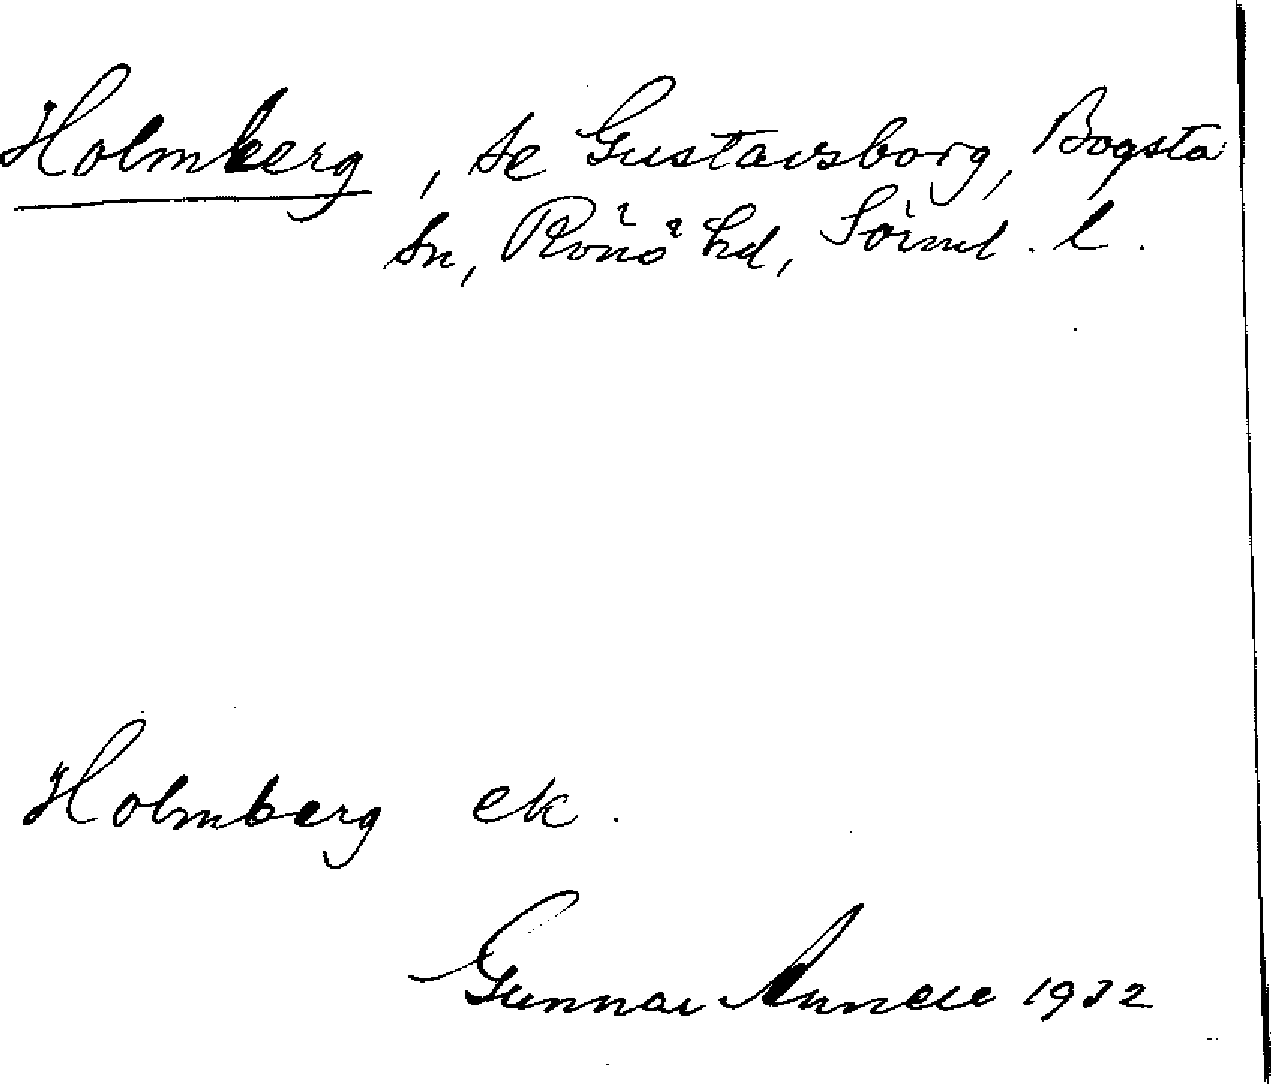 Holmberg, se Gustavsborg, Bogsta
sn, Rönö hd, Sörml. l.
Holmberg ek.
Gunnar Annell 1932